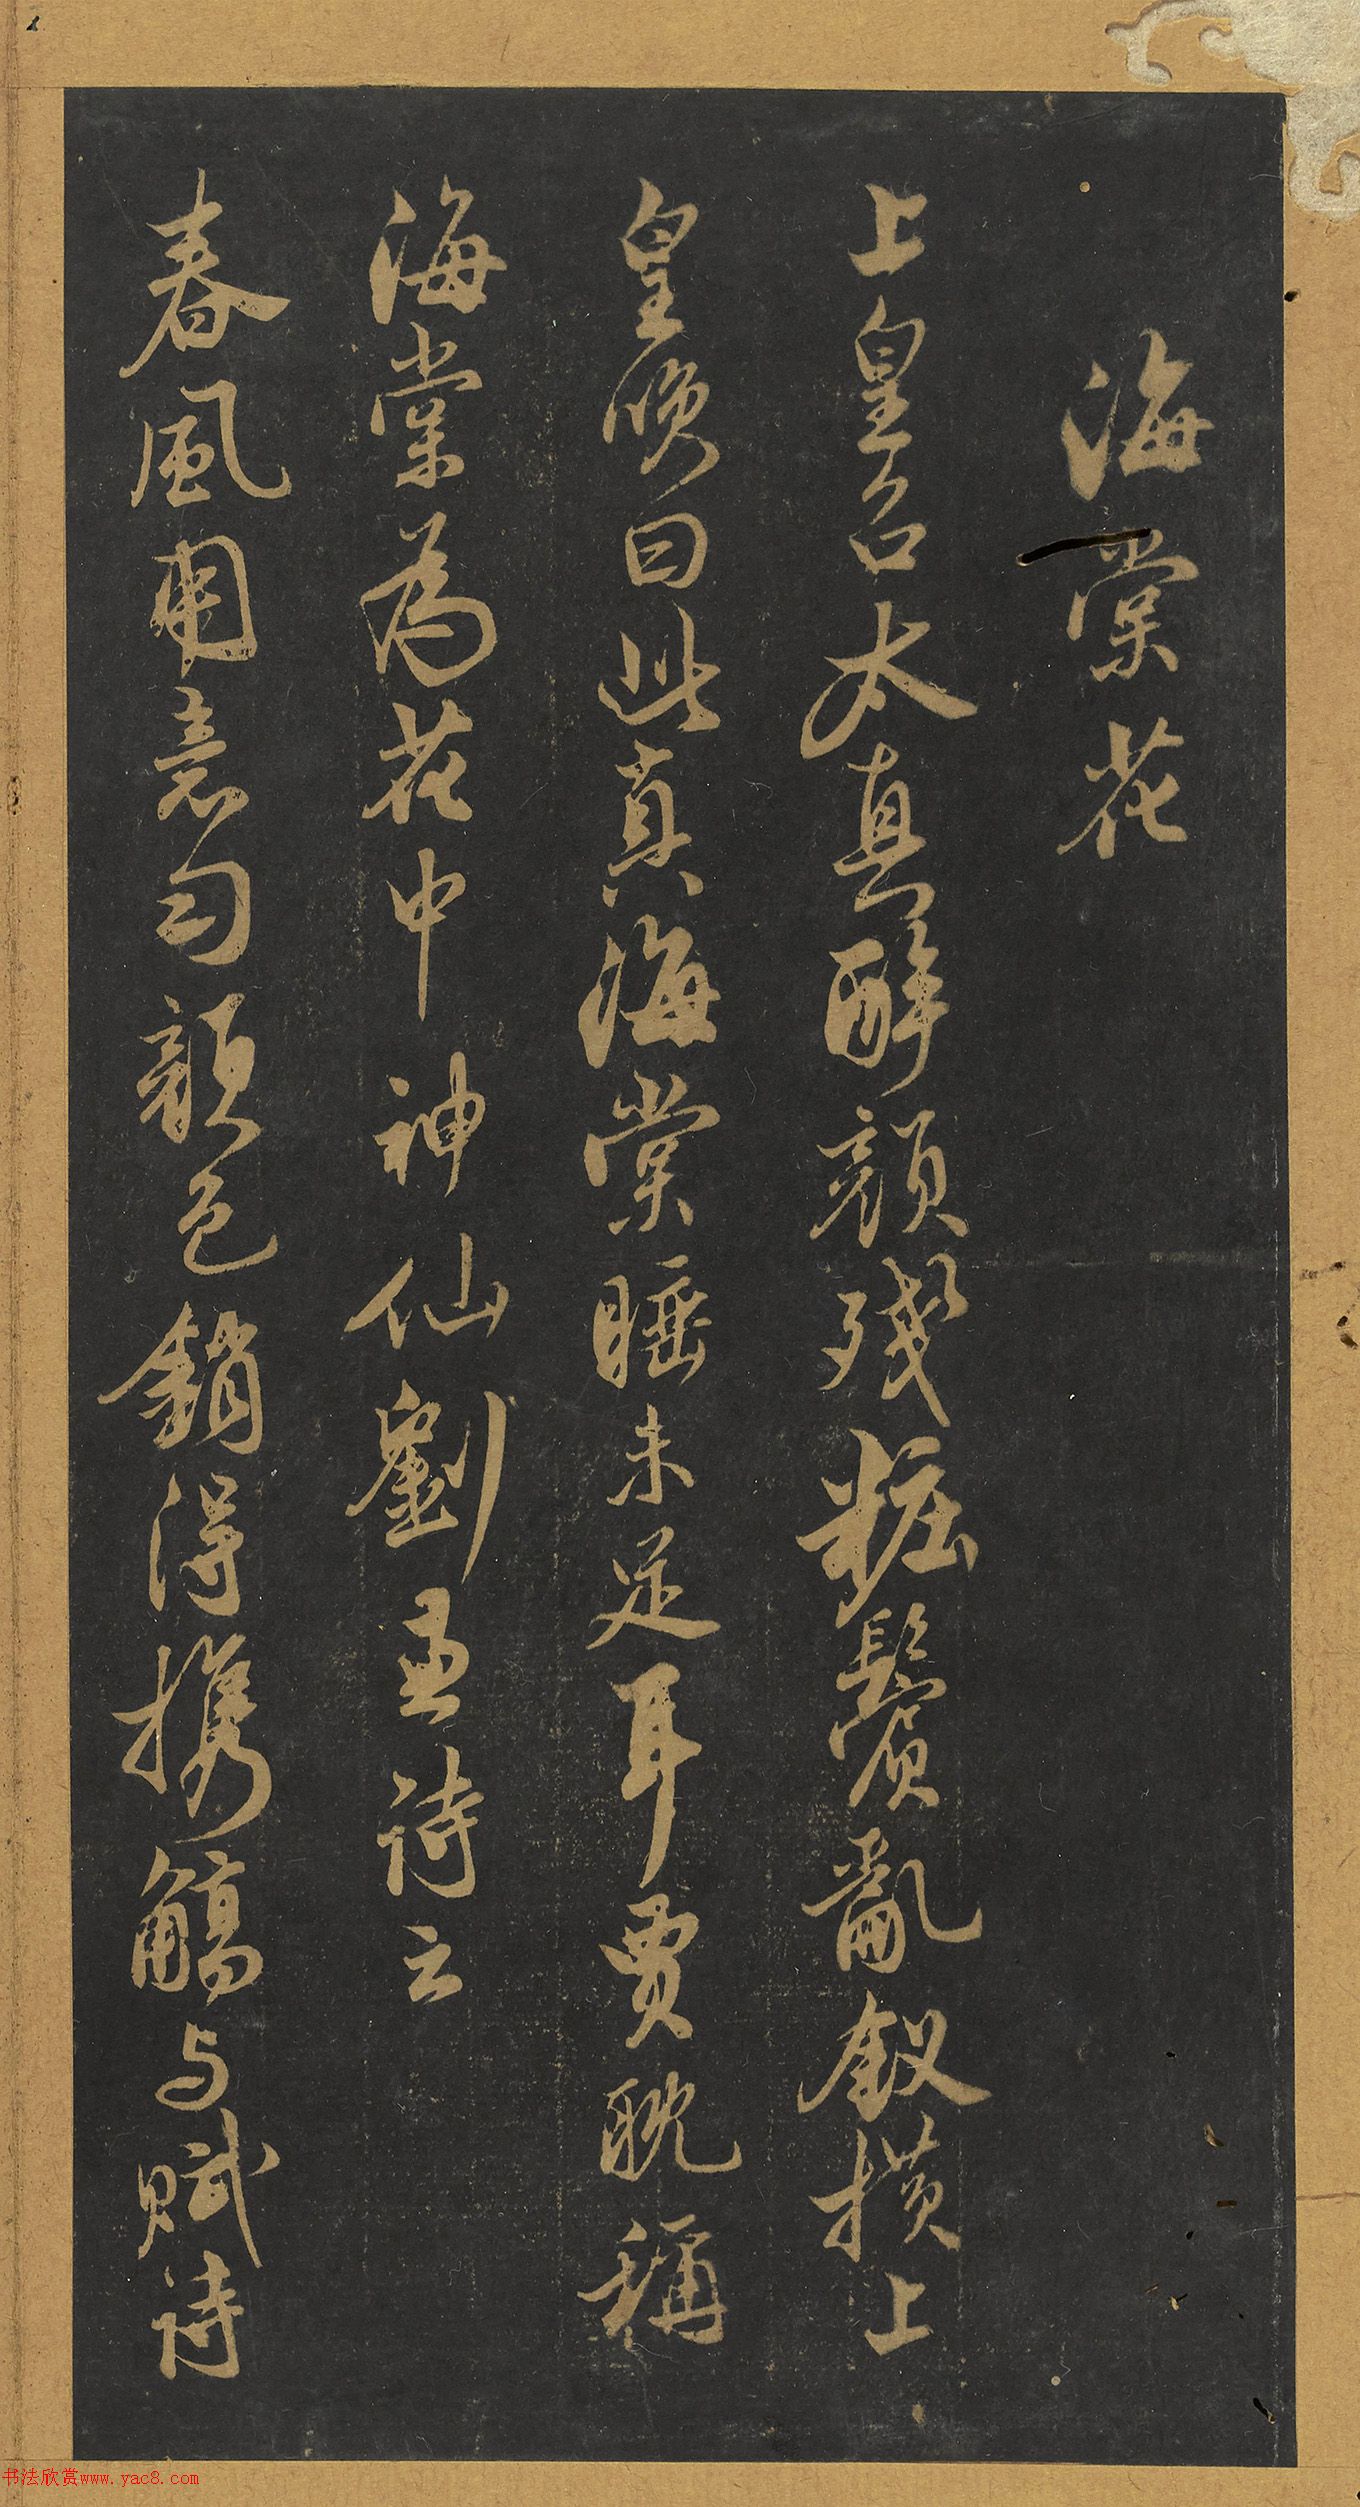 海棠花
上皇召太真醉顔殘粧鬢亂釵横上
皇咲曰此真海棠睡未足耳賈耽稱
海棠為花中神仙劉孟詩云
春風用意匀顔色銷得携觴与賦詩
书法欣赏www.yac8.com